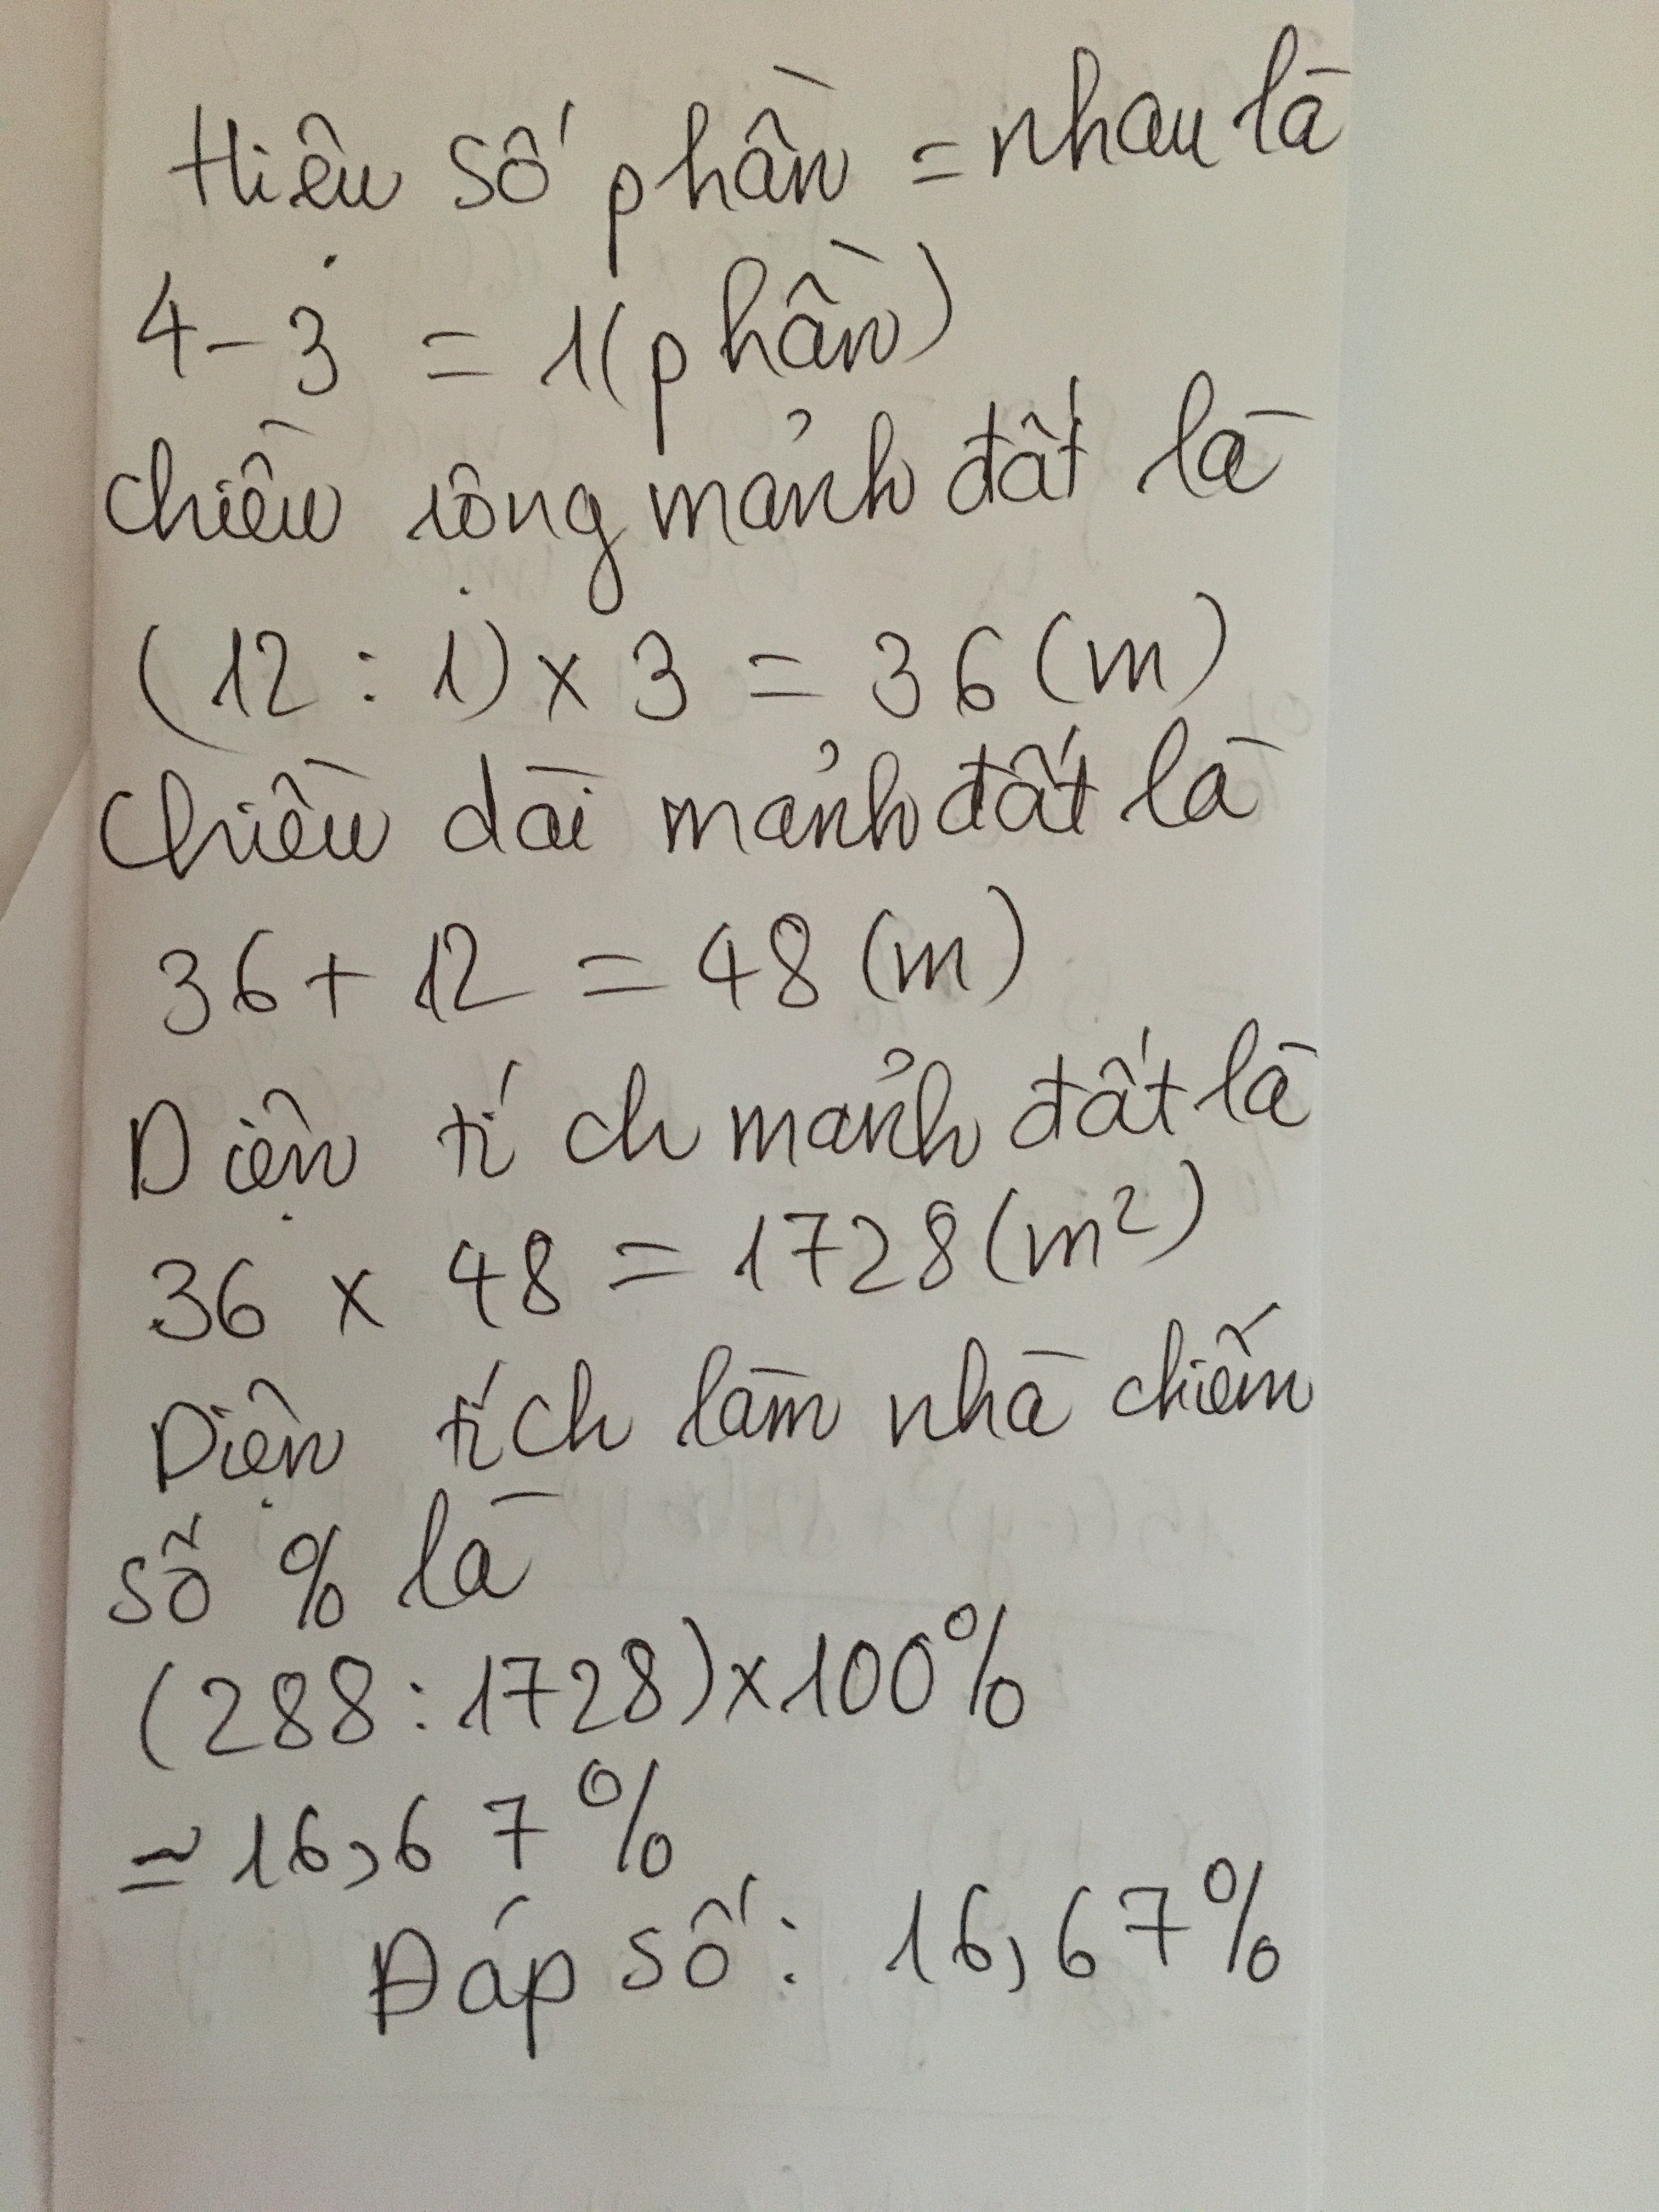 Hiệu số phần = nhau là
4 - 3 = 1 (phần)
Chiều rộng mảnh đất là
(12 : 1) x 3 = 36 (m)
Chiều dài mảnh đất là
36 + 12 = 48 (m)
Diện tích mảnh đất là
36 x 48 = 1728 (m²)
Diện tích làm nhà chiếm
số % là
(288 : 1728) x 100%
≃ 16,67%
Đáp số: 16,67%